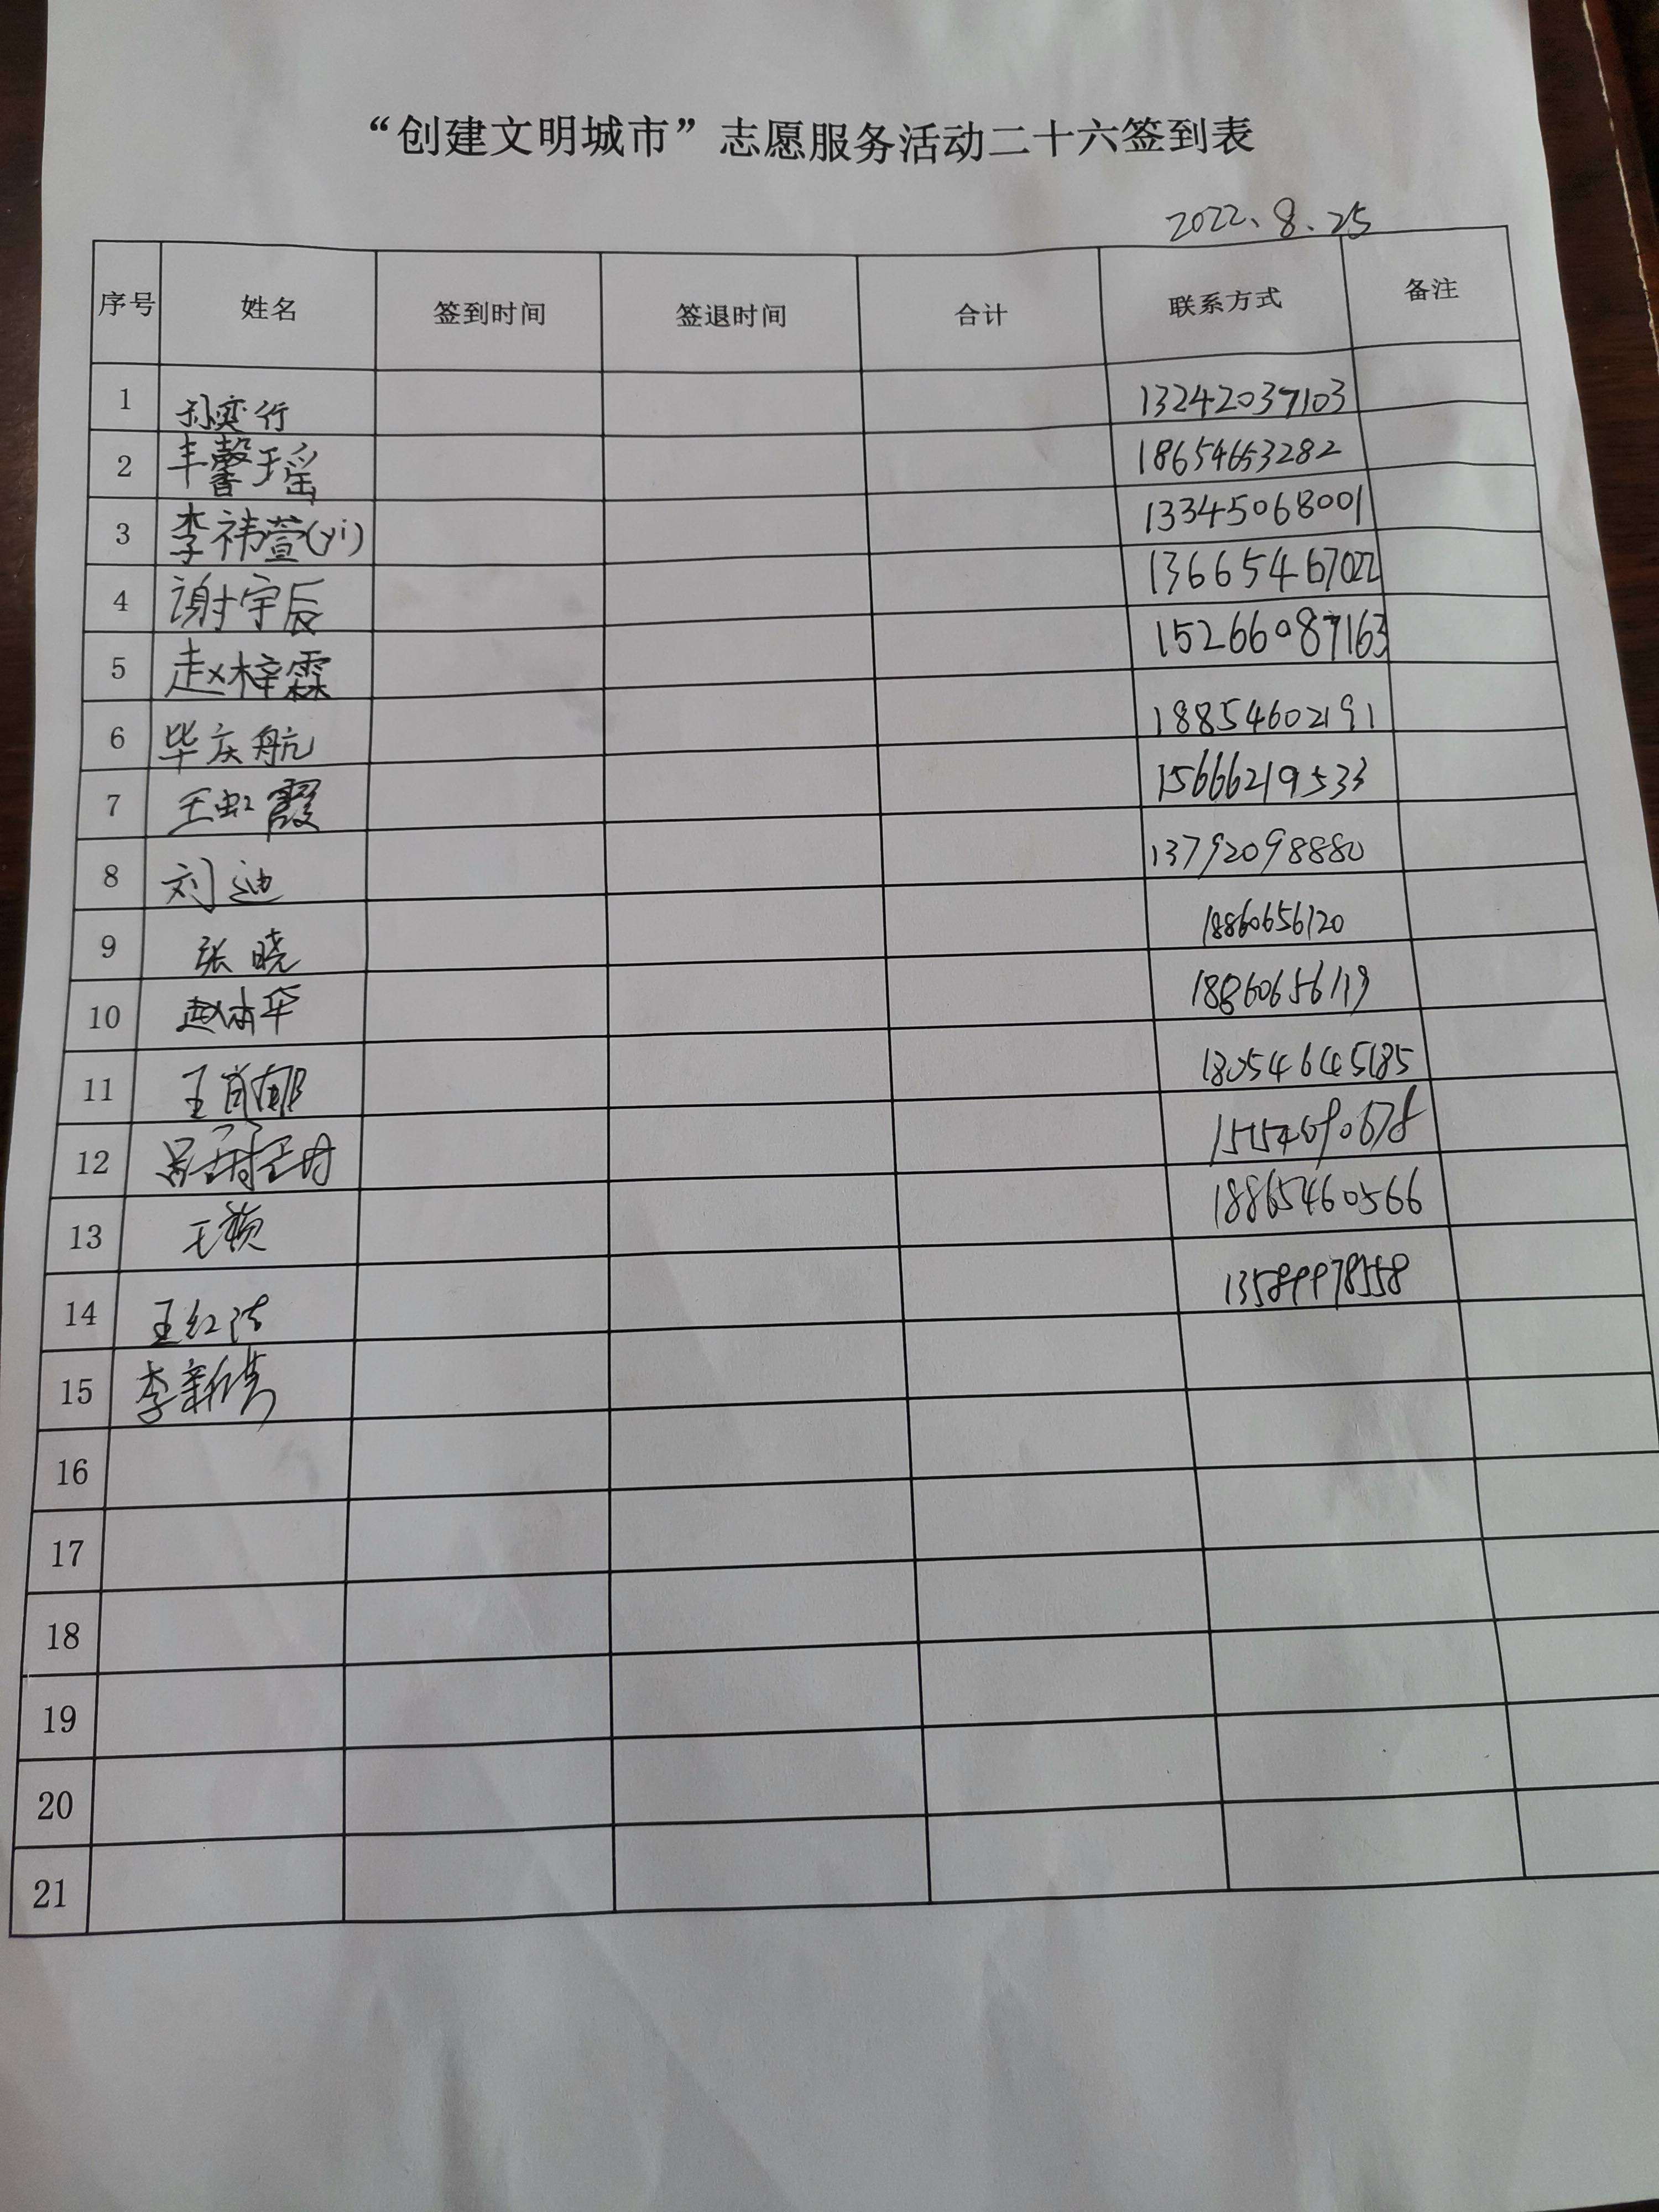 “创建文明城市”志愿服务活动二十六签到表
2022、8、25
序号 姓名 签到时间 签退时间 合计 联系方式 备注
1 孙奕行 13242037103
2 丰馨瑶 18654653282
3 李祎萱(yi) 13345068001
4 谢宇辰 13665467022
5 赵梓霖 15266087163
6 毕庆航 18854602191
7 王虹霞 15666219533
8 刘迪 13792098880
9 张晓 18860656120
10 18860656119
11 王 18054645185
12
13 王颖 18865460566
14 王红洁 13589978558
15 李新
16
17
18
19
20
21